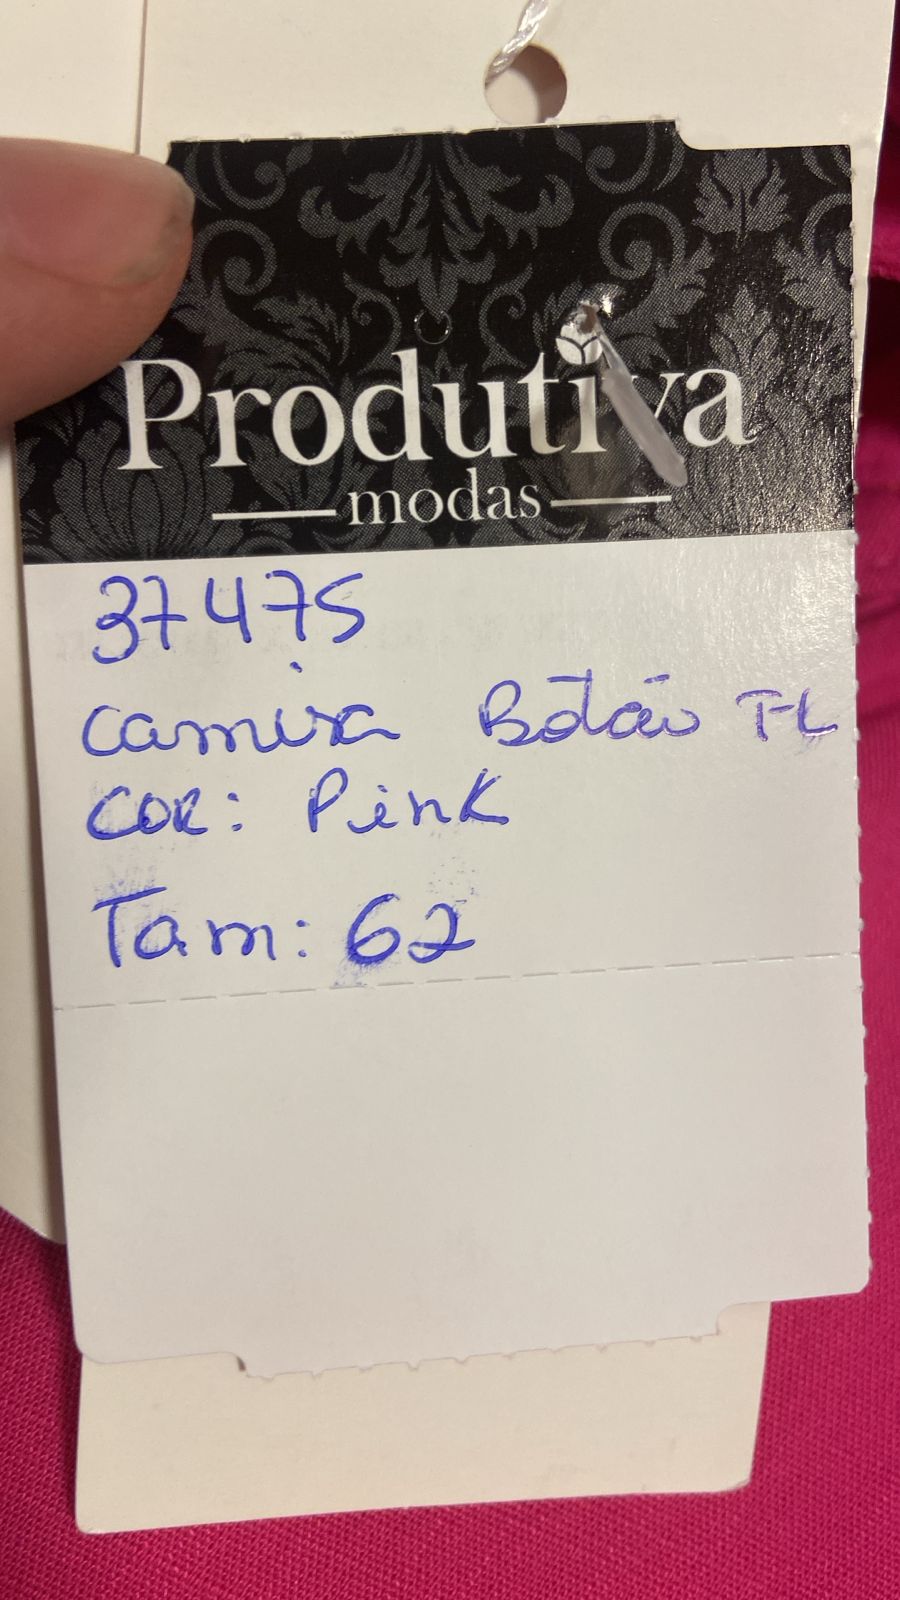 Produtiva
modas
37475
camisa Botão FL
COR: Pink
Tam: 62